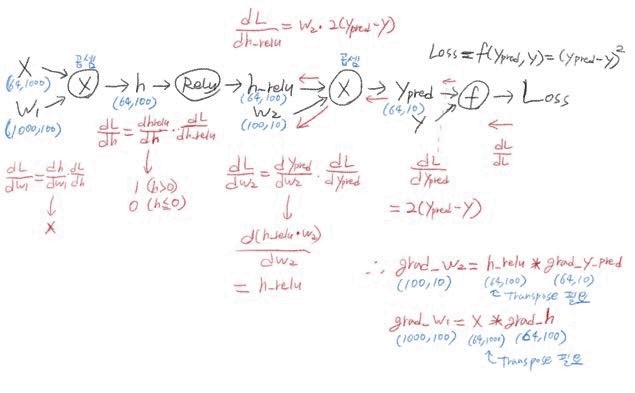 dL/dh_relu = W₂ · 2(Ypred-Y)
Loss = f(Ypred, Y) = (Ypred-Y)²
곱셈
곱셈
X → X → h → Relu → h_relu → X → Ypred → f → Loss
(64,1000)
(64,100)
(64,100)
(64,10)
W₁
(1000,100)
W₂
(100,10)
Y
dL/dL
dL/dh = dhrelu/dh · dL/dhrelu
1 (h>0)
0 (h≤0)
dL/dW₁ = dh/dW₁ · dL/dh
X
dL/dW₂ = dYpred/dW₂ · dL/dYpred
d(h_relu·W₂)/dW₂
= h_relu
dL/dYpred
= 2(Ypred-Y)
∴ grad_W₂ = h_relu * grad_y_pred
(100,10) (64,100) (64,10)
Transpose 필요
grad_W₁ = X * grad_h
(1000,100) (64,1000) (64,100)
Transpose 필요